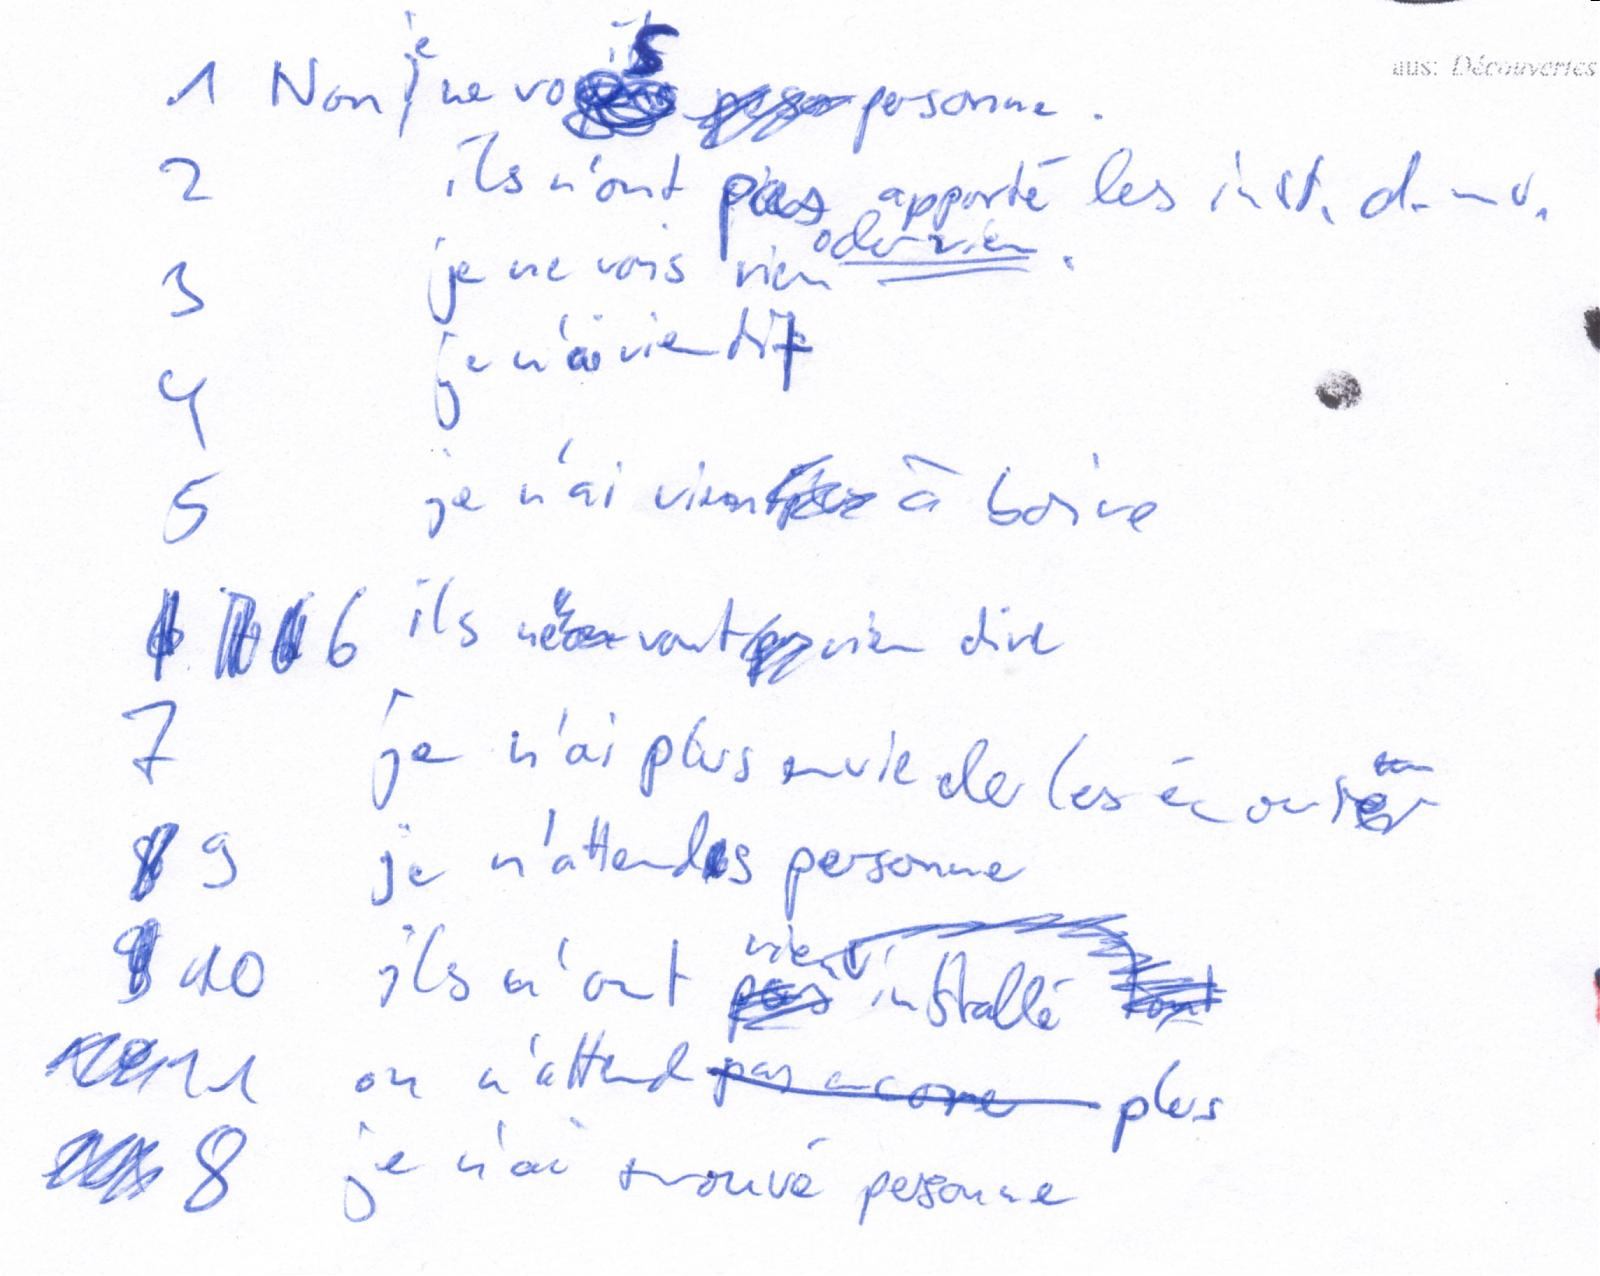 aus: Découvertes
1 Non je ne vois personne.
2 ils n'ont pas apporté les inst. d. m.
3 je ne vois rien derrière.
4 je n'ai rien dit
5 je n'ai rien à boire
6 ils ne vont rien dire
7 je n'ai plus envie de les écouter
9 je n'attends personne
10 ils n'ont rien installé
11 on n'attend plus
8 je n'ai trouvé personne